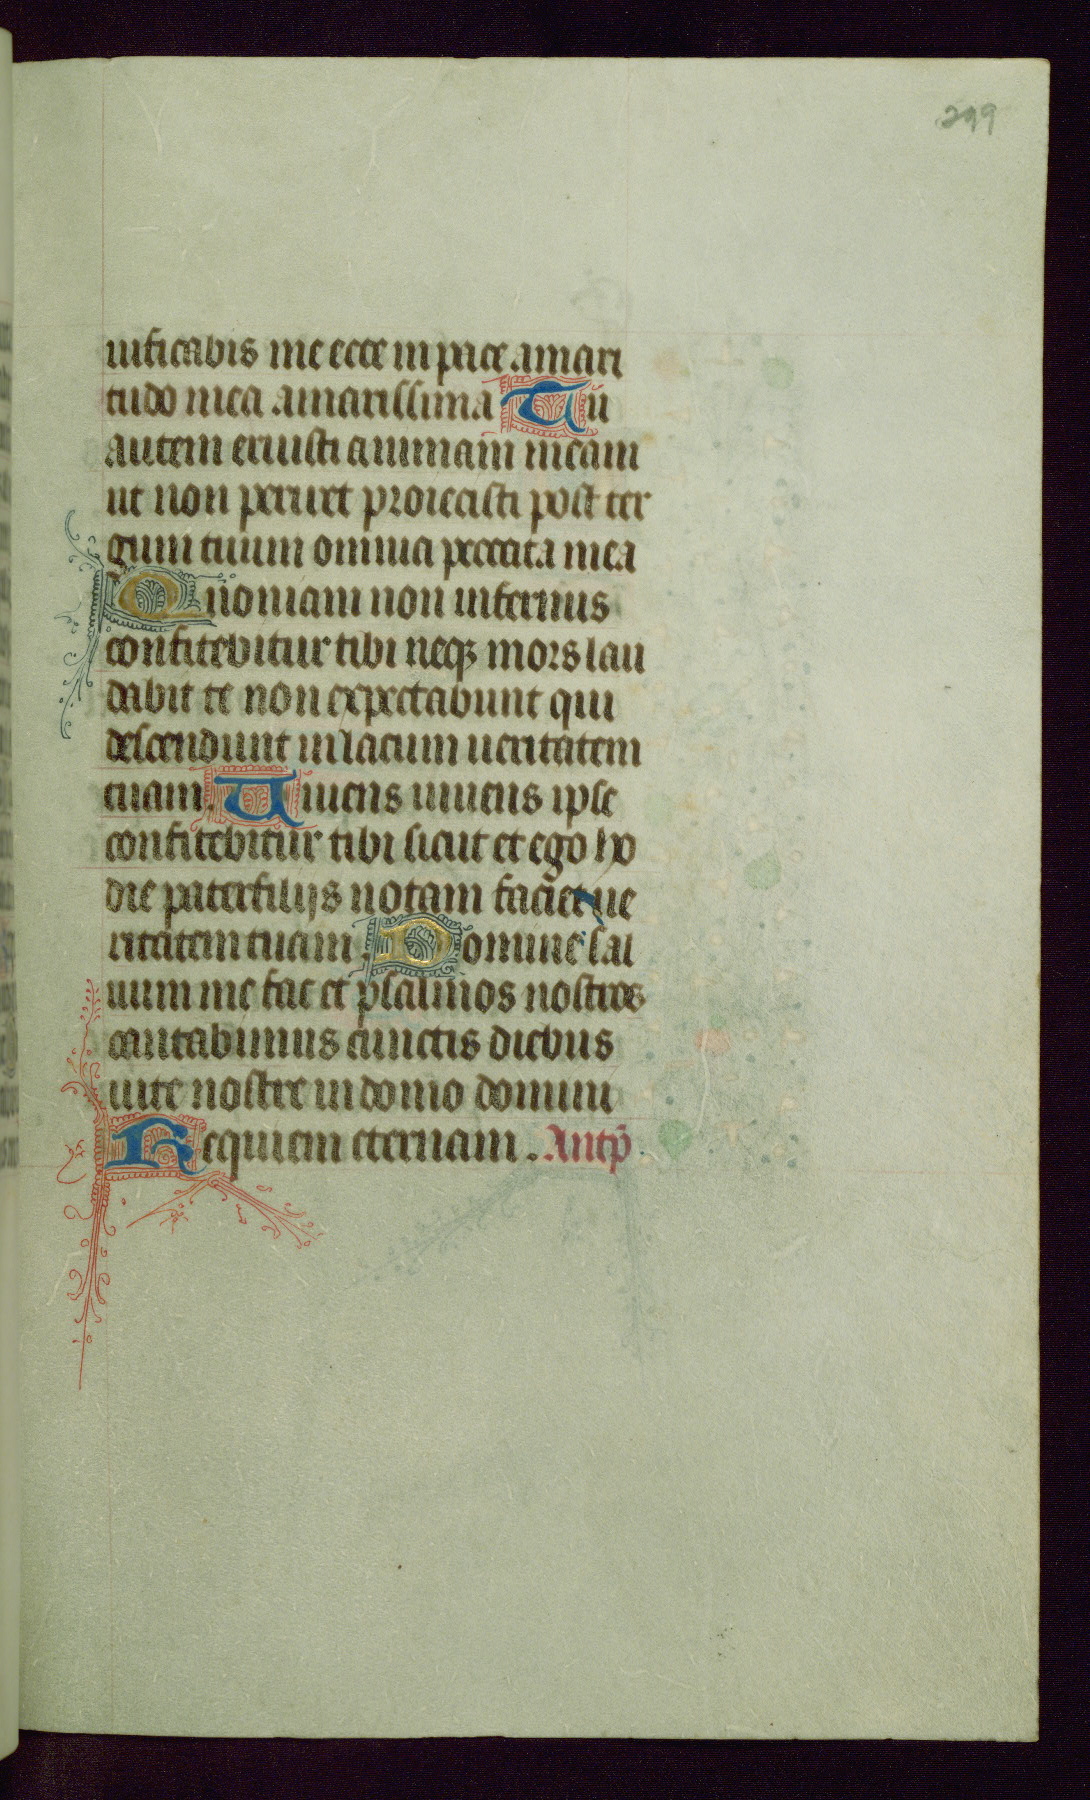 299
uificabis me ecce in pace amari
tudo mea amarissima Tu
autem eruisti animam meam
ut non periret proiecisti post ter
gum tuum omnia peccata mea
Quoniam non infernus
confitebitur tibi neqꝫ mors lau
dabit te non expectabunt qui
descendunt in lacum ueritatem
tuam. Uiuens uiuens ipse
confitebitur tibi sicut et ego ho
die pater filijs notam faciet ue
ritatem tuam. Domine sal
uum me fac et psalmos nostros
cantabimus cunctis diebus
uite nostre in domo domini
Requiem eternam. Antp̄